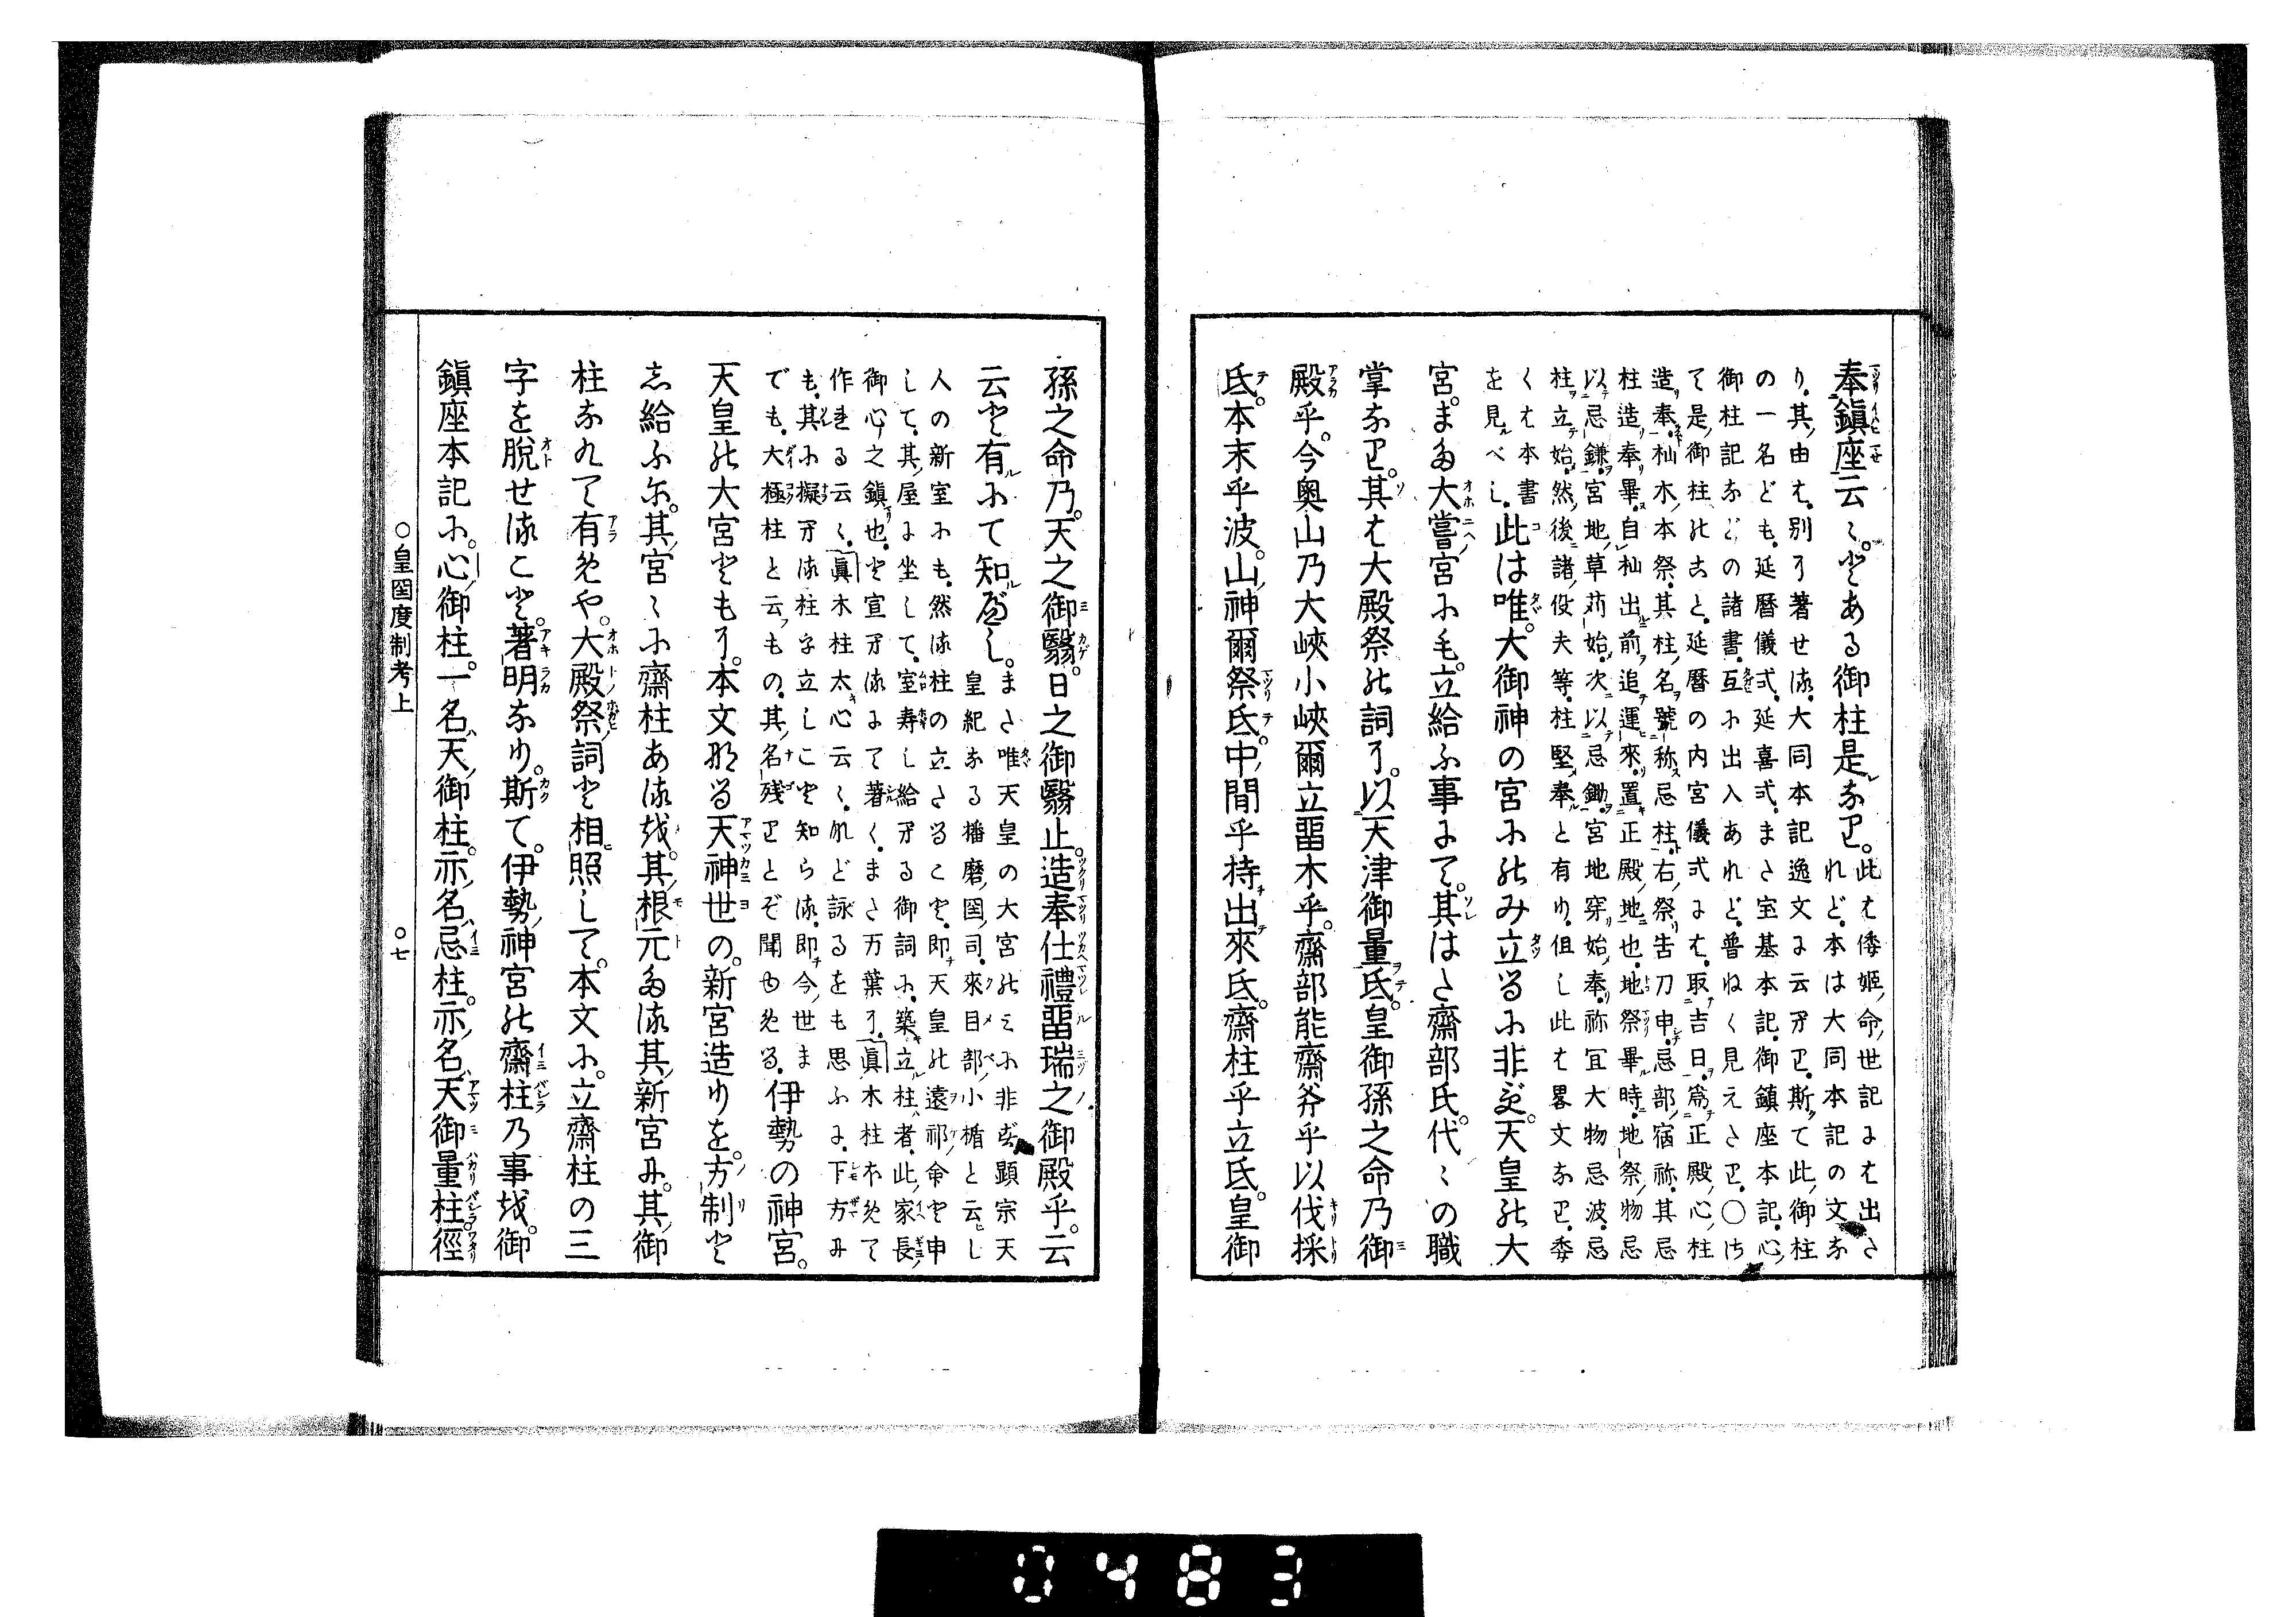 奉鎭座云〻とある御柱是なり。此は倭姫命世記には出さ
れど。本は大同本記の文な
り。其由は。別に著せる。大同本記逸文に云へり。斯て此御柱
の一名ども。延暦儀式。延喜式。また宝基本記。御鎮座本記。心
御柱記などの諸書。互に出入あれど。普ねく見えたり。〇さ
て是御柱のこと。延暦の内宮儀式には。取吉日。為正殿心柱
造奉杣木本祭。其柱名号称忌柱。右祭告刀申。忌部宿祢。其忌
柱造奉畢。自杣出前追運來。置正殿地也。地祭畢時。地祭物忌
以忌鎌宮地草苅始。次以忌鋤宮地穿始奉。祢宜大物忌波。忌
柱立始。然後諸役夫等。柱堅奉と有り。但し此は畧文なり。委
くは本書
を見べし。此は唯。大御神の宮にのみ立るに非ず。天皇の大
宮。また大嘗宮にも立給ふ事にて。其はた齋部氏。代〻の職
掌なり。其は大殿祭の詞に。以天津御量氐。皇御孫之命乃御
殿乎。今奥山乃大峡小峡爾立畱木乎。齋部能齋斧乎以伐採
氐。本末乎波。山神爾祭氐。中間乎持出來氐。齋柱乎立氐。皇御
孫之命乃。天之御翳。日之御翳止。造奉仕禮畱瑞之御殿乎。云
云と有にて知べし。また唯天皇の大宮のみに非ず顕宗天
皇紀なる播磨國司。來目部小楯と云し
人の新室にも。然る柱の立たること。即天皇の遠祁命と申
して。其屋に坐して。室寿し給へる御詞に。築立柱者。此家長
御心之鎮也。と宣へるにて著く。また万葉に。真木柱ほめて
作れる云〻。真木柱太心云〻。など詠るをも思ふに。下方に
も。其に擬へる柱を立しこと知らる。即今世ま
でも。大極柱と云もの。其名残りとぞ聞ゆめる。伊勢の神宮。
天皇の大宮ともに。本文なる天神世の。新宮造りを。方制と
為給ふに。其宮〻に齋柱あるを。其根元たる其新宮に。其御
柱なくて有めや。大殿祭詞と相照して。本文に。立齋柱の三
字を脱せること。著明なり。斯て。伊勢神宮の齋柱乃事を。御
鎭座本記に。心御柱。一名天御柱。亦名忌柱。亦名天御量柱。徑
〇皇國度制考上 〇七
0483